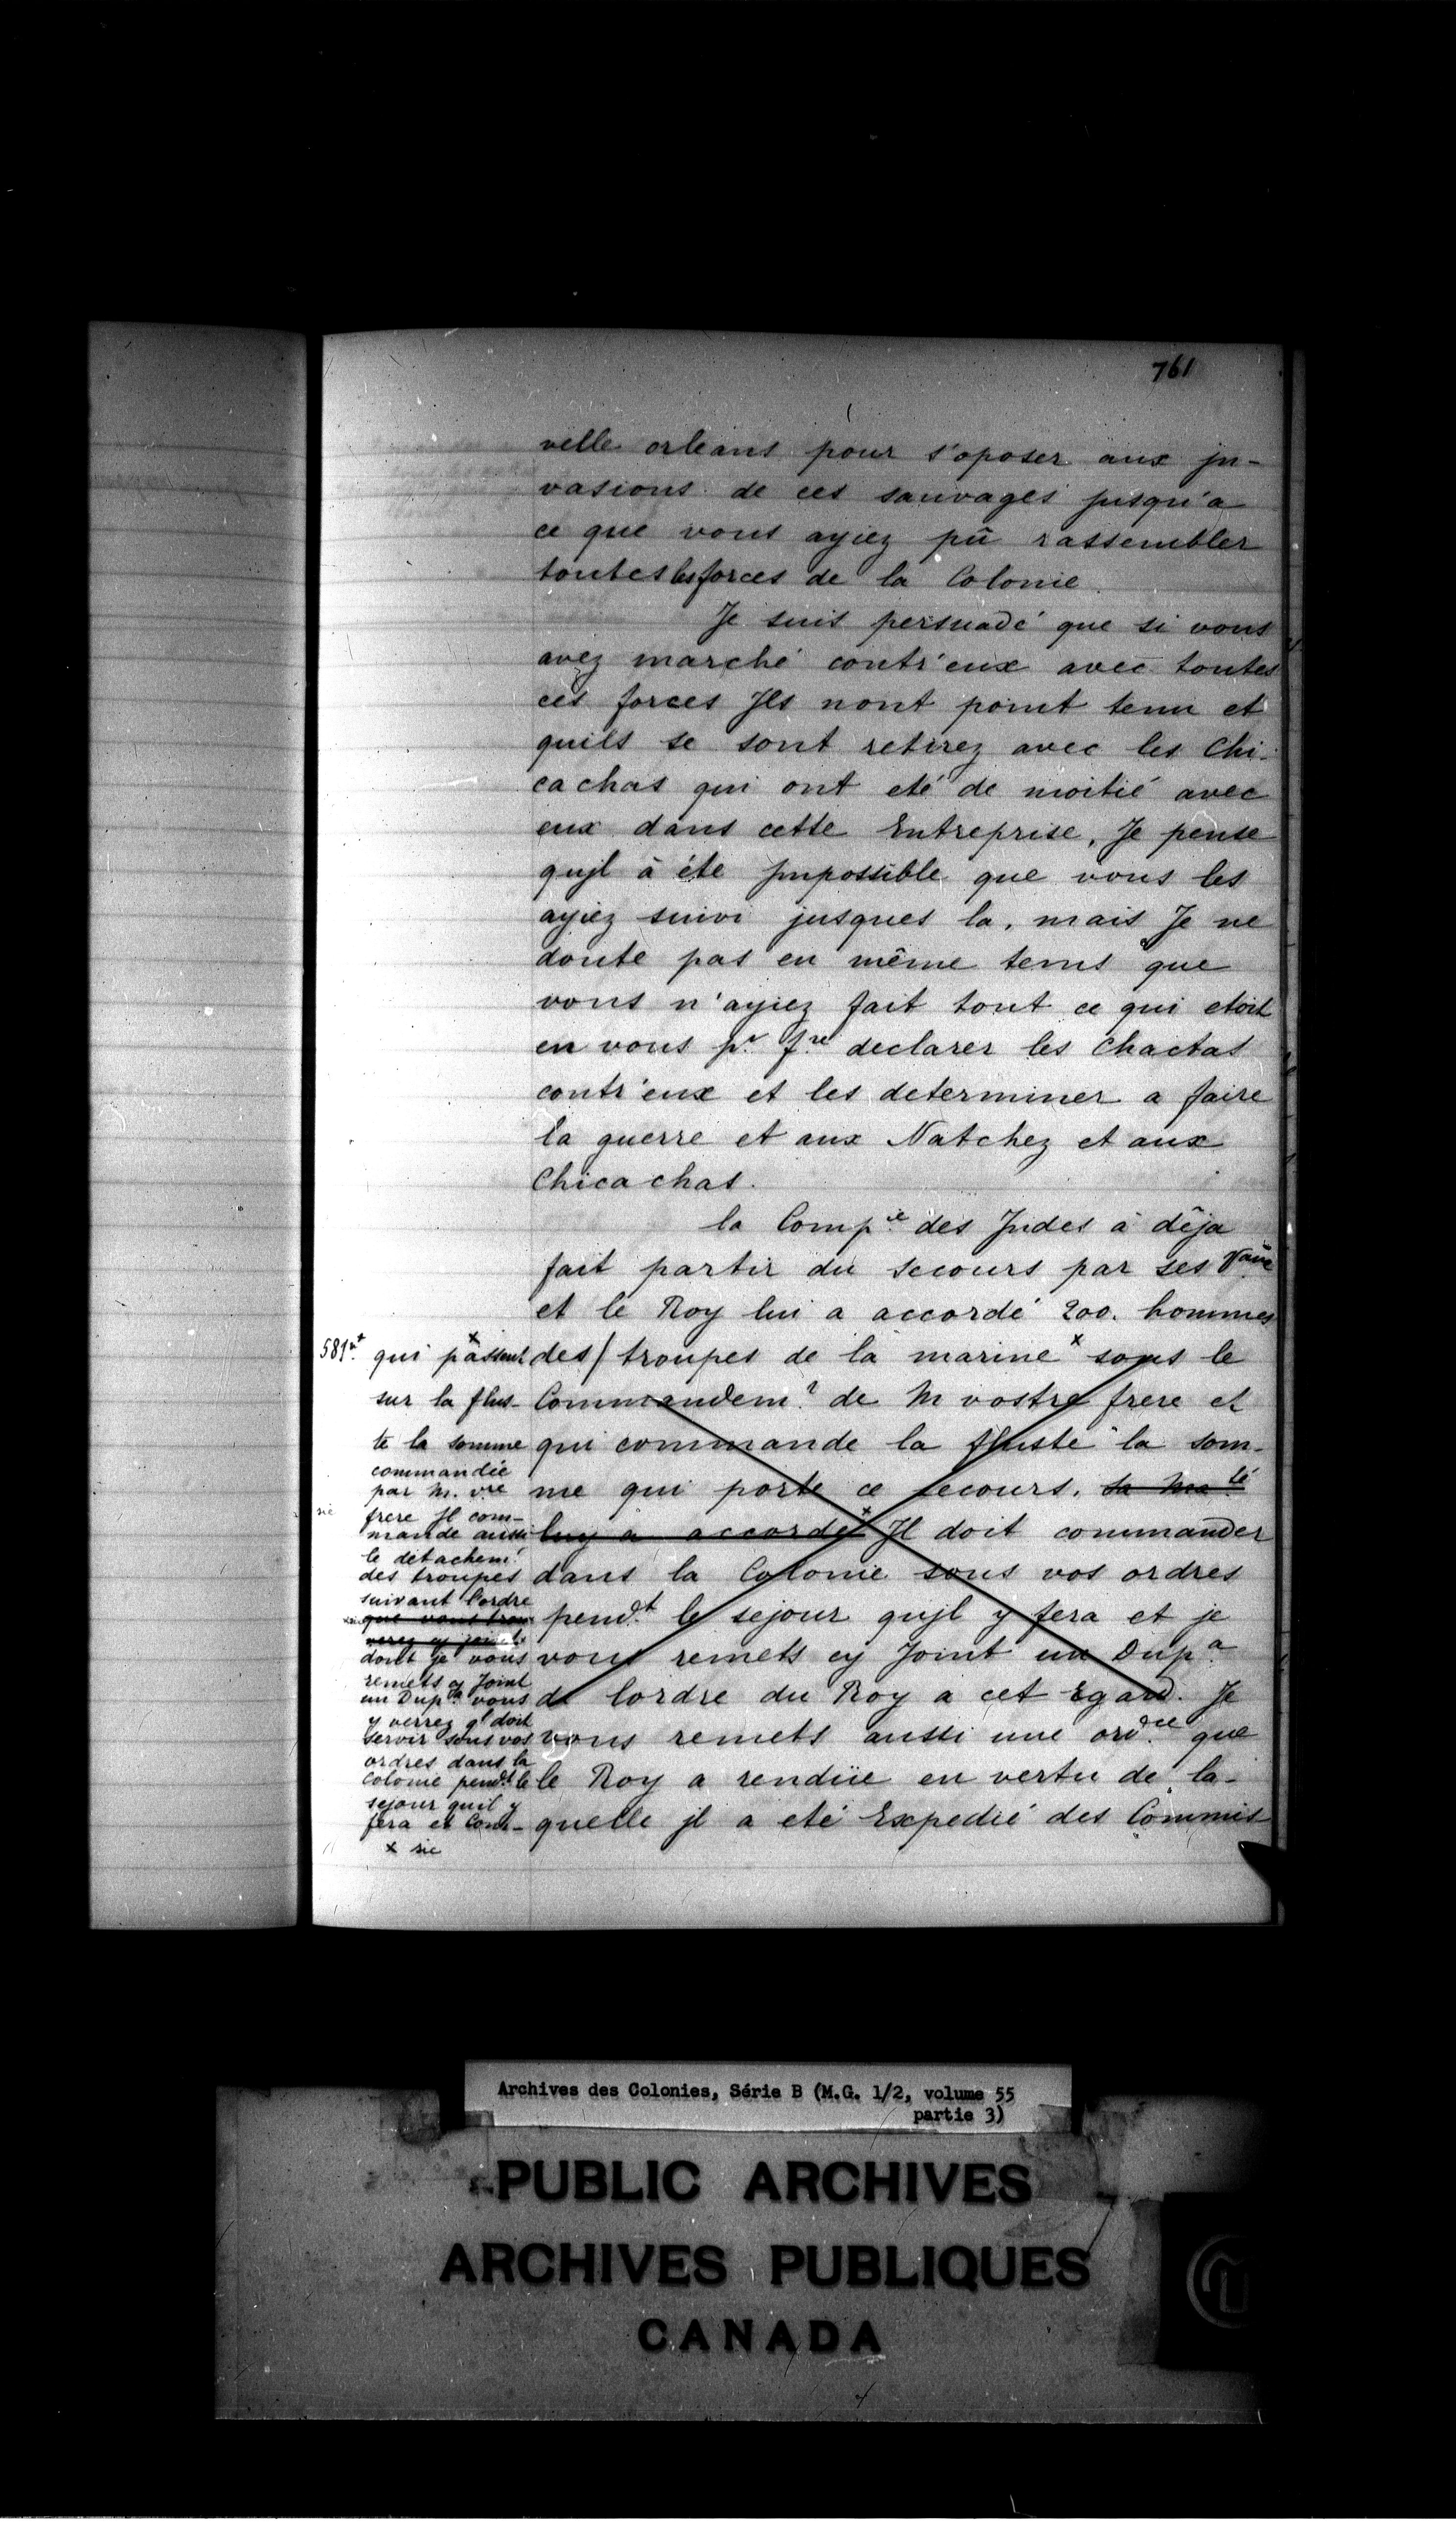 761
velle orleans pour s'oposer aux jn-
vasions de ces sauvages jusqu'a
ce que vous ayiez pû rassembler
toutes les forces de la Colonie.
Je suis persuadé que si vous
avez marché contr'eux avec toutes
ces forces Jls nont point tenu et
quils se sont retirez avec les Chi-
cachas qui ont eté de moitié avec
eux dans cette Entreprise, Je pense
qujl à éte Jmpossible que vous les
ayiez suivi jusques la, mais Je ne
doute pas en même tems que
vous n'ayiez fait tout ce qui etoit
en vous pr. fre declarer les Chactas
contr'eux et les determiner a faire
la guerre et aux Natchez et aux
Chicachas.
la Compie des Jndes à dêja
fait partir du secours par ses Vaux
et le Roy lui a accordé 200. hommes
des/ troupes de la marine x sous le
Commandemt. de M vostre frere et
qui commande la fluste la som-
me qui porte ce secours. sa Maté
luy a accordé x Jl doit commander
dans la Colonie sous vos ordres
pendt. le sejour qujl y fera et je
vous remets cy Joint un Dupa
de lordre du Roy a cet Egard. Je
vous remets aussi une ordce que
le Roy a rendüe en vertu de la-
quelle jl a eté Expedié des Commis
581 vt.
x
qui passent
sur la flus-
te la somme
commandée
par M. vre
sic
frere Jl com-
mande aussi
le détachemt
des troupes
suivant l'ordre
x sic
que vous trou
verez cy joint
dont je vous
remets cy Joint
un Dupa. vous
y verrez ql doit
servir sous vos
ordres dans la
Colonie pendt. le
sejour quil y
fera et Com-
x sic
Archives des Colonies, Série B (M.G. 1/2, volume 55
partie 3)
PUBLIC ARCHIVES
ARCHIVES PUBLIQUES
CANADA